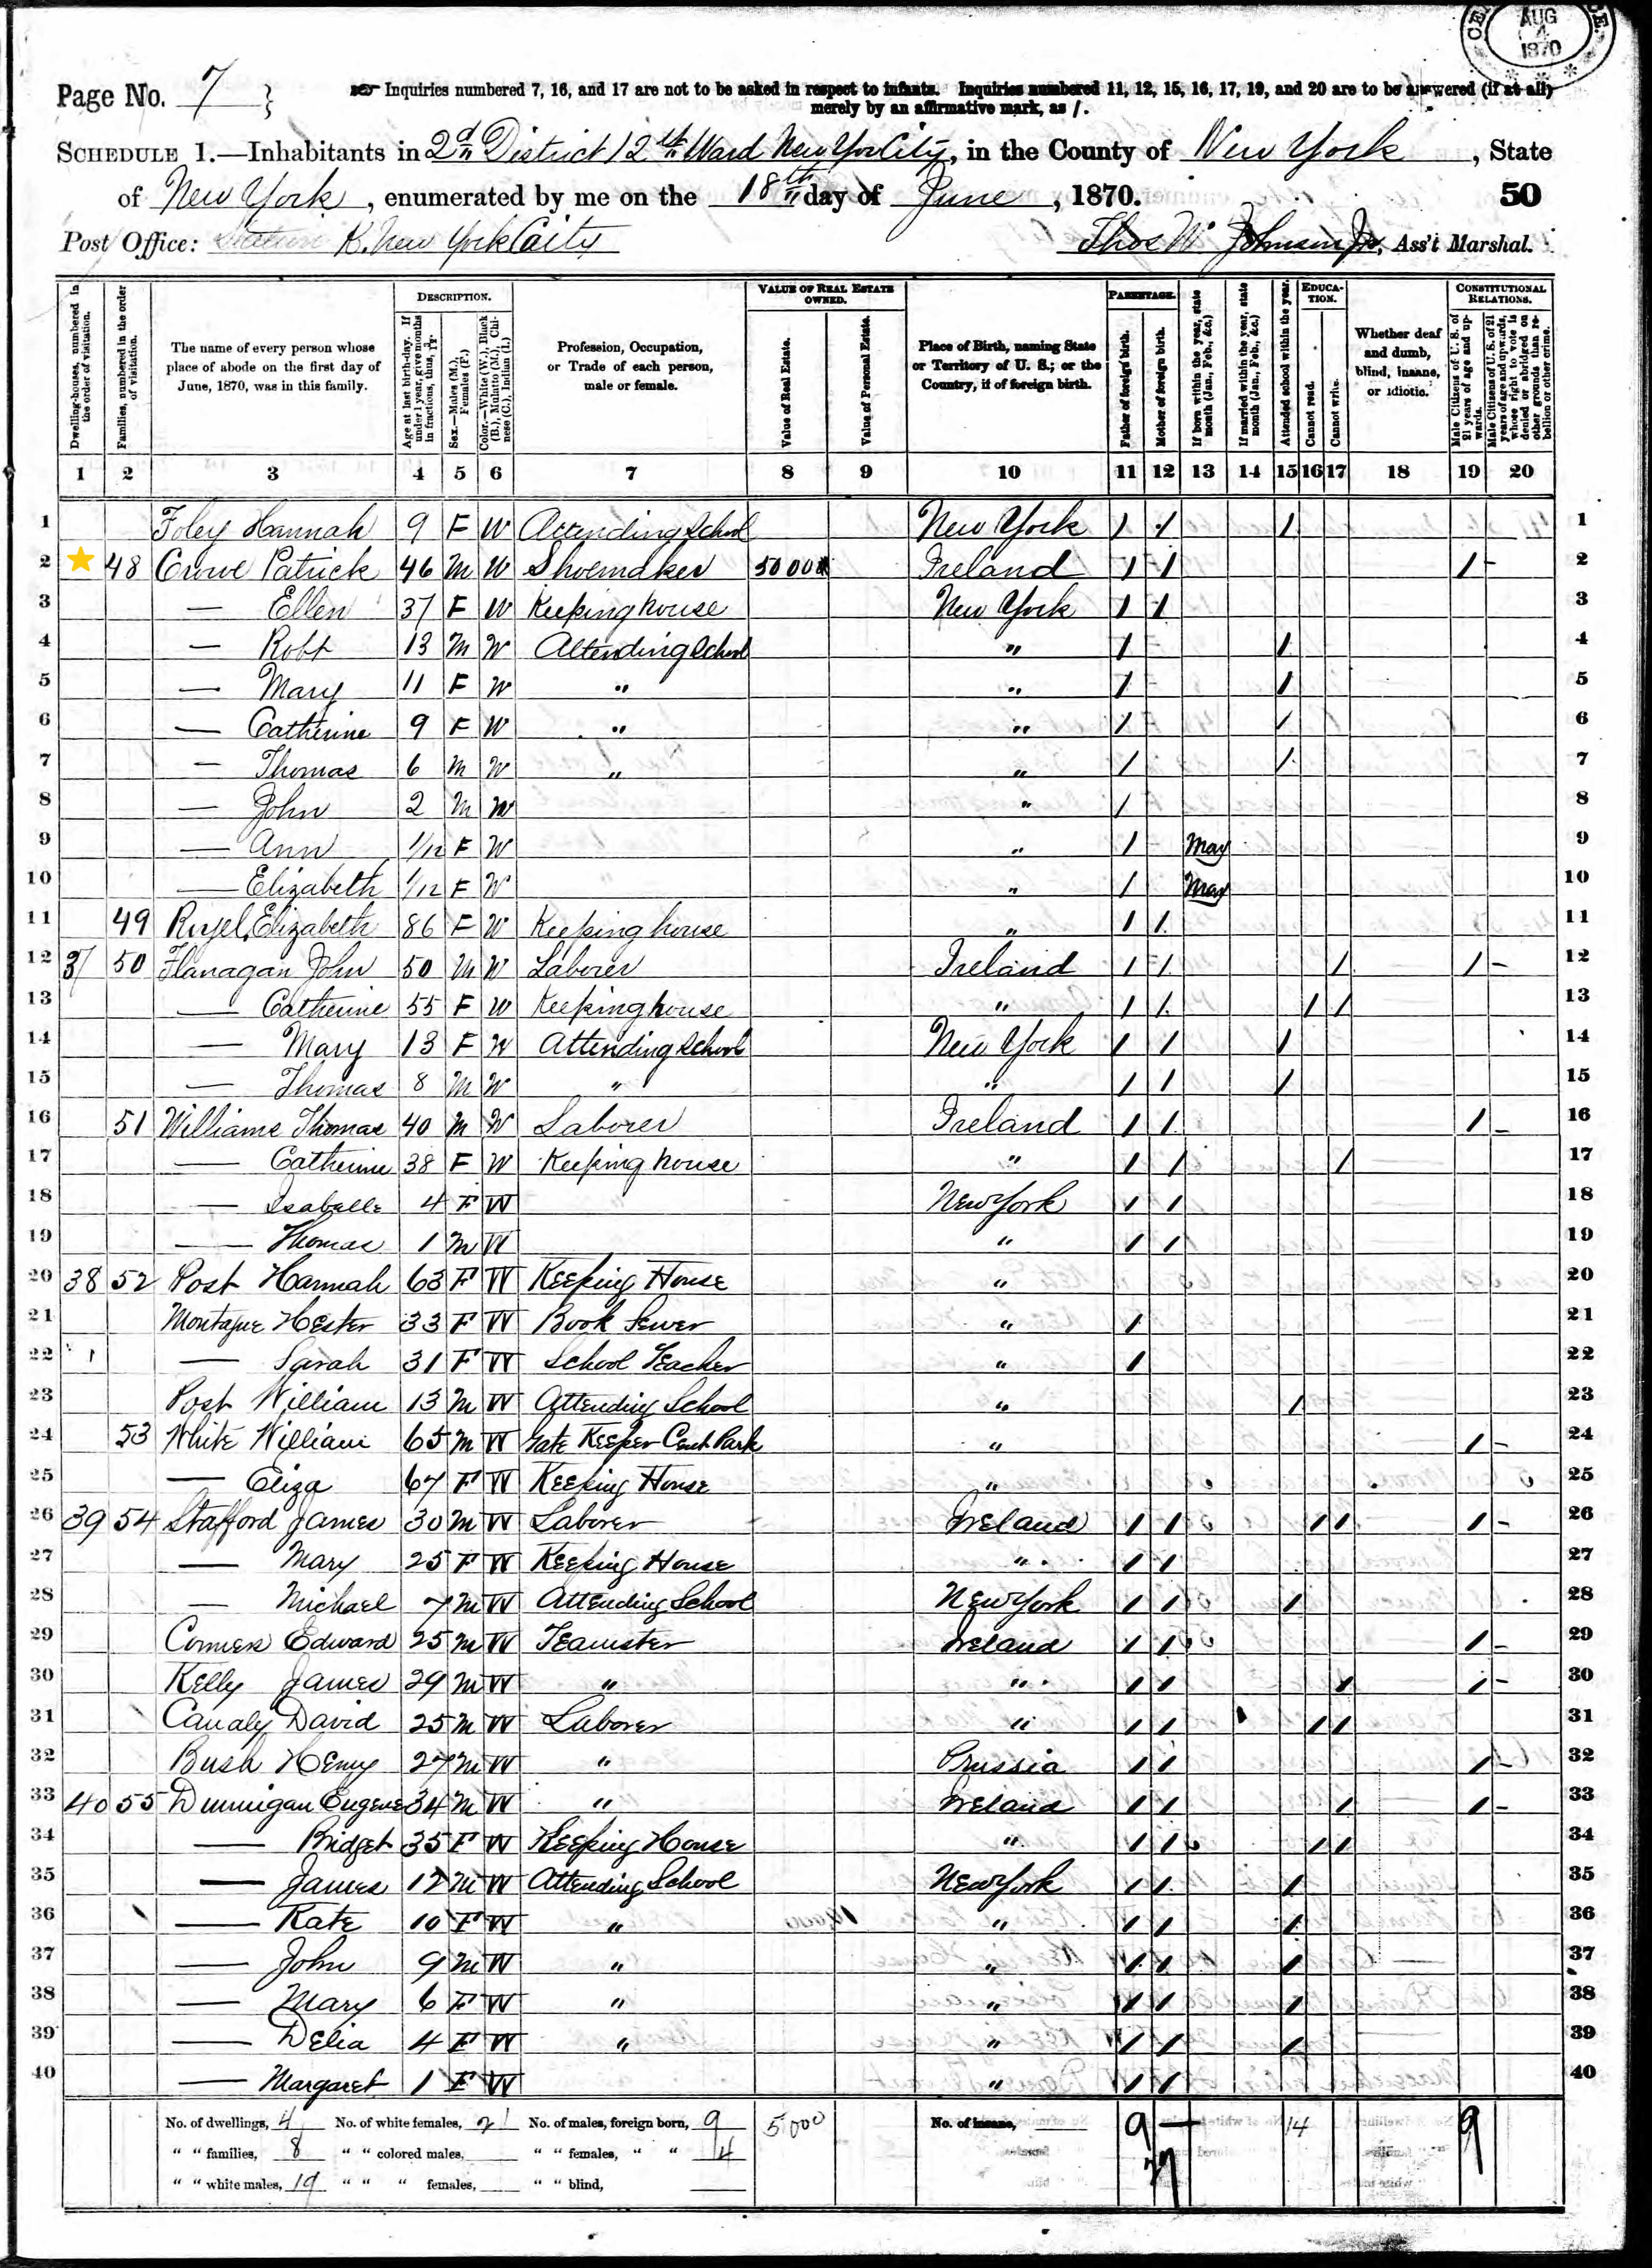 AUG
4
1870
Page No. 7
Inquiries numbered 7, 16, and 17 are not to be asked in respect to infants. Inquiries numbered 11, 12, 15, 16, 17, 19, and 20 are to be answered (if at all)
merely by an affirmative mark, as /.
SCHEDULE 1.—Inhabitants in 2d District 12th Ward New York City, in the County of New York, State
of New York, enumerated by me on the 18th day of June, 1870. 50
Post Office: Station K. New York City Thos W Johnson Jr, Ass't Marshal.
Dwelling-houses, numbered in the order of visitation.
Families, numbered in the order of visitation.
The name of every person whose place of abode on the first day of June, 1870, was in this family.
DESCRIPTION.
Age at last birth-day. If under 1 year, give months in fractions, thus, 3/12.
Sex.—Males (M.), Females (F.)
Color.—White (W.), Black (B.), Mulatto (M.), Chinese (C.), Indian (I.)
Profession, Occupation, or Trade of each person, male or female.
VALUE OF REAL ESTATE OWNED.
Value of Real Estate.
Value of Personal Estate.
Place of Birth, naming State or Territory of U. S.; or the Country, if of foreign birth.
PARENTAGE.
Father of foreign birth.
Mother of foreign birth.
If born within the year, state month (Jan., Feb., &c.)
If married within the year, state month (Jan., Feb., &c.)
Attended school within the year.
EDUCATION.
Cannot read.
Cannot write.
Whether deaf and dumb, blind, insane, or idiotic.
CONSTITUTIONAL RELATIONS.
Male Citizens of U. S. of 21 years of age and upwards.
Male Citizens of U. S. of 21 years of age and upwards, whose right to vote is denied or abridged on other grounds than rebellion or other crime.
1 2 3 4 5 6 7 8 9 10 11 12 13 14 15 16 17 18 19 20
1 Foley Hannah 9 F W Attending School New York / / / 1
2 48 Crowe Patrick 46 M W Shoemaker 5000 Ireland / / / - 2
3 — Ellen 37 F W Keeping house New York / / 3
4 — Robt 13 M W Attending School " / / 4
5 — Mary 11 F W " " / / 5
6 — Catherine 9 F W " " / / 6
7 — Thomas 6 M W " " / / 7
8 — John 2 M W " / 8
9 — Ann 1/12 F W " / May 9
10 — Elizabeth 1/12 F W " / May 10
11 49 Elizabeth 86 F W Keeping house " / / 11
12 37 50 Flanagan John 50 M W Laborer Ireland / / / / - 12
13 — Catherine 55 F W Keeping house " / / / / 13
14 — Mary 13 F W Attending School New York / / / 14
15 — Thomas 8 M W " " / / / 15
16 51 Williams Thomas 40 M W Laborer Ireland / / / - 16
17 — Catherine 38 F W Keeping house " / / / 17
18 — Isabella 4 F W New York / / 18
19 — Thomas 1 M W " / / 19
20 38 52 Post Hannah 63 F W Keeping House " 20
21 Montague Hester 33 F W Book Sewer " / 21
22 — Sarah 31 F W School Teacher " / 22
23 Post William 13 M W Attending School " / 23
24 53 White William 65 M W Gate Keeper Cent Park " / - 24
25 — Eliza 67 F W Keeping House " 25
26 39 54 Stafford James 30 M W Laborer Ireland / / / / / - 26
27 — Mary 25 F W Keeping House " / / 27
28 — Michael 7 M W Attending School New York / / / 28
29 Conners Edward 25 M W Teamster Ireland / / / - 29
30 Kelly James 29 M W " " / / / / - 30
31 Canaly David 25 M W Laborer " / / / / 31
32 Bush Henry 27 M W " Prussia / / / - 32
33 40 55 Dunnigan Eugene 34 M W " Ireland / / / / - 33
34 — Bridget 35 F W Keeping House " / / / / 34
35 — James 12 M W Attending School New York / / / 35
36 — Kate 10 F W " " / / / 36
37 — John 9 M W " " / / / 37
38 — Mary 6 F W " " / / / 38
39 — Delia 4 F W " " / / / 39
40 — Margaret 1 F W " / / 40
No. of dwellings, 4 No. of white females, 21 No. of males, foreign born, 9 5000 No. of insane, 9 — 14 9
" " families, 8 " " colored males, " " females, " " 4
" " white males, 19 " " " females, " " blind,